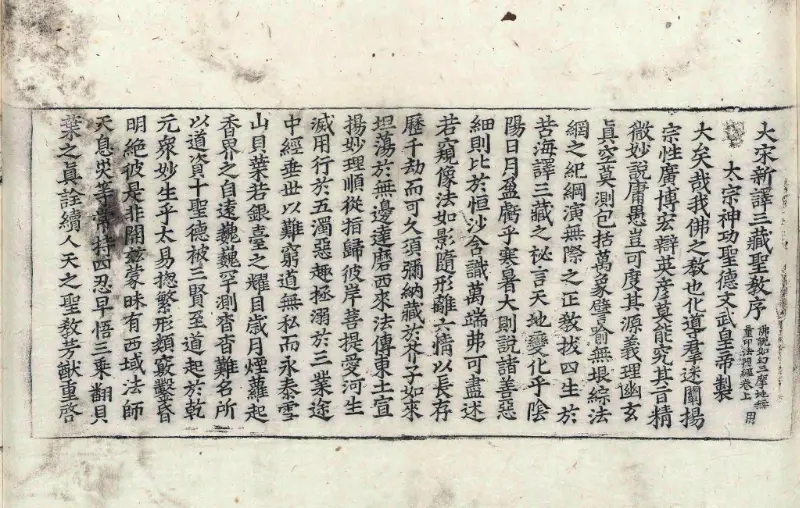 大宋新譯三藏聖教序
佛說如幻三摩地無
量印法門經卷上 用
太宗神功聖德文武皇帝製
大矣哉我佛之教也化導羣迷闡揚
宗性廣博宏辯英彥莫能究其旨精
微妙說庸愚豈可度其源義理幽玄
真空莫測包括萬象譬喻無垠綜法
網之紀綱演無際之正教拔四生於
苦海譯三藏之祕言天地變化乎陰
陽日月盈虧乎寒暑大則說諸善惡
細則比於恒沙含識萬端弗可盡述
若窺像法如影隨形離六情以長存
歷千劫而可久須彌納藏於芥子如來
坦蕩於無邊達磨西來法傳東土宣
揚妙理順從指歸彼岸菩提愛河生
滅用行於五濁惡趣拯溺於三業途
中經垂世以難窮道無私而永泰雪
山貝葉若銀臺之耀目歲月煙蘿起
香界之自遠巍巍罕測杳杳難名所
以道資十聖德被三賢至道起於乾
元衆妙生乎太易揔繁形類竅鑿昏
明絶彼是非開茲蒙昧有西域法師
天息災等常持四忍早悟三乘翻貝
葉之真詮續人天之聖教芳猷重啓